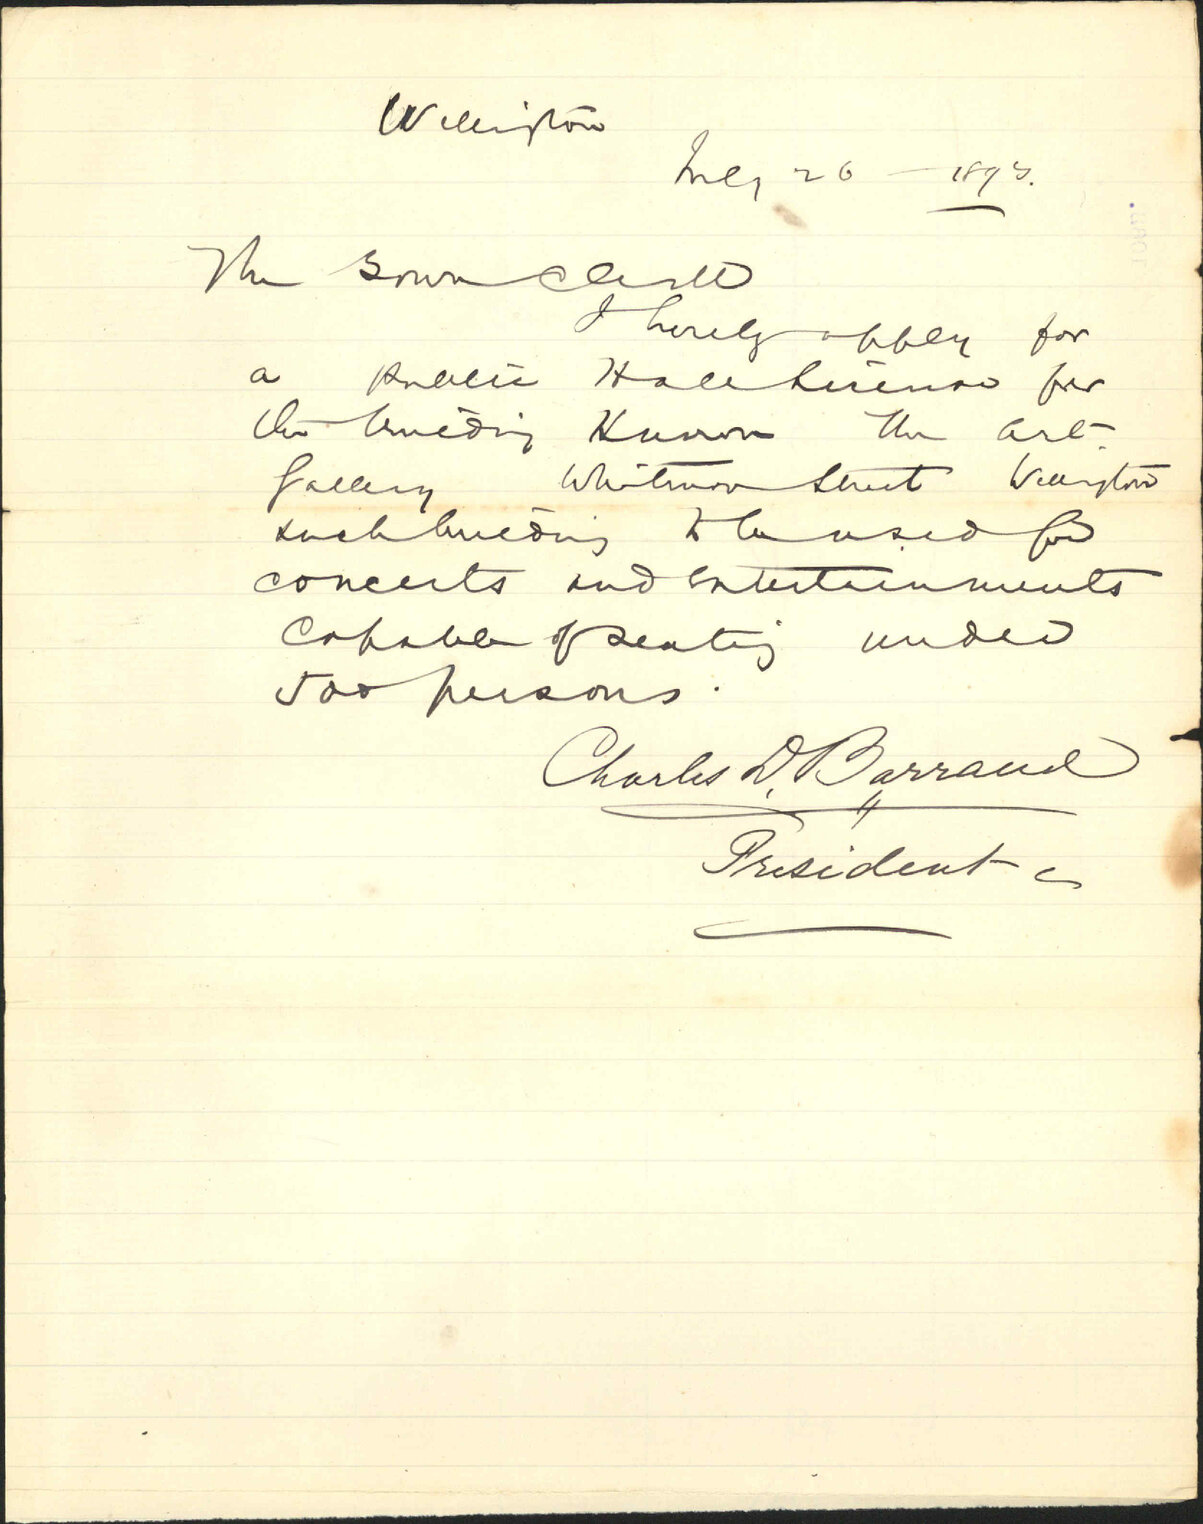 Wellington
July 26 — 1893.
The Town Clerk
I hereby apply for
a Public Hall License for
the building Known the Art
Gallery Whitmore Street Wellington
such building to be used for
concerts and entertainments
capable of seating under
500 persons.
Charles D. Barraud
President